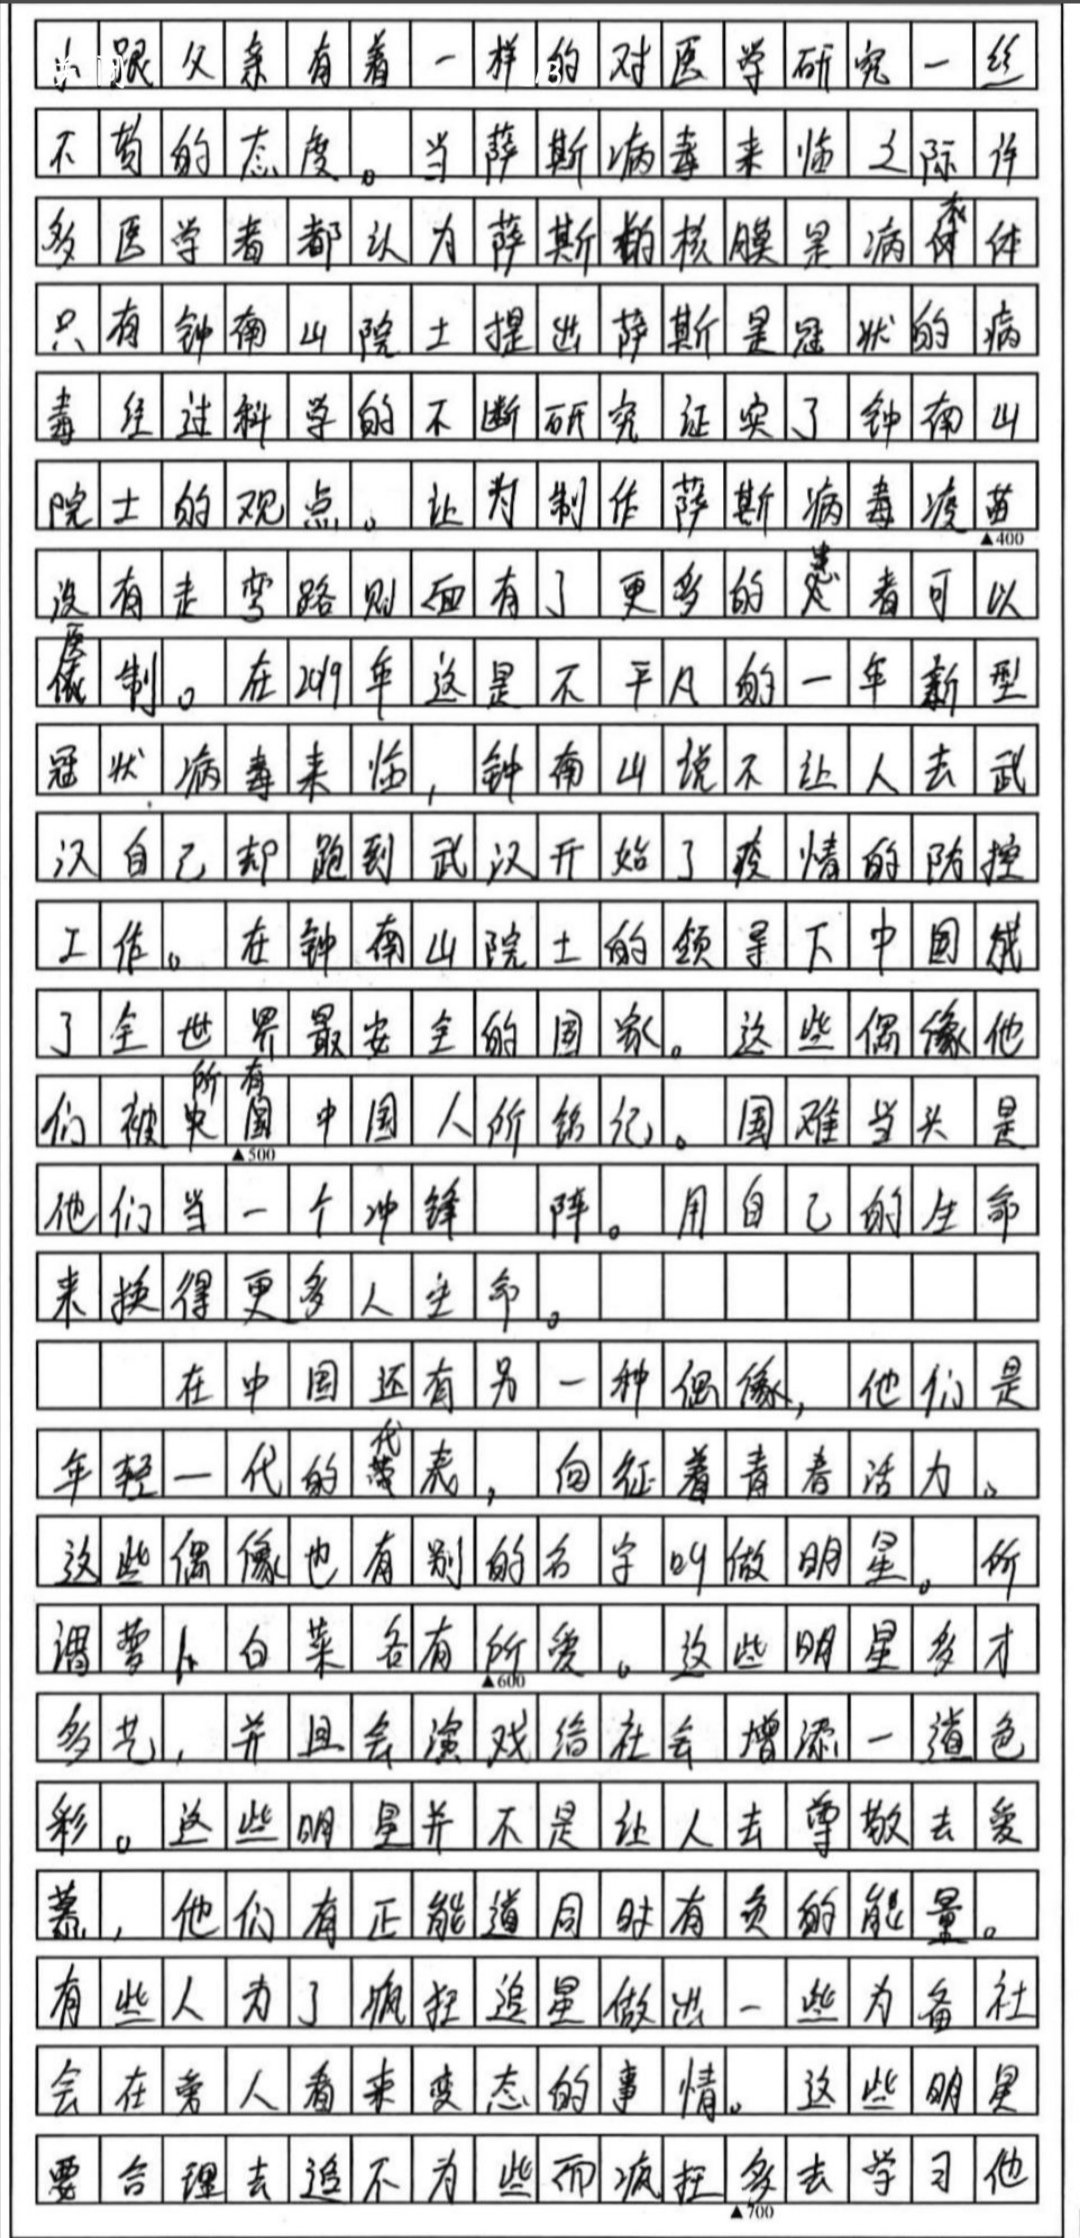 跟父亲有着一样的对医学研究一丝
不苟的态度。当萨斯病毒来临之际许
多医学者都认为萨斯的核膜是病体
只有钟南山院士提出萨斯是冠状的病
毒经过科学的不断研究证实了钟南山
院士的观点。让为制作萨斯病毒疫苗
▲400
没有走弯路则面有了更多的患者可以
医制。在2019年这是不平凡的一年新型
冠状病毒来临,钟南山说不让人去武
汉自己却跑到武汉开始了疫情的防控
工作。在钟南山院士的领导下中国成
了全世界最安全的国家。这些偶像他
们被所有中国人所铭记。国难当头是
▲500
他们当一个冲锋 阵。用自己的生命
来换得更多人生命。
在中国还有另一种偶像,他们是
年轻一代的代表,向征着青春活力。
这些偶像也有别的名字叫做明星。所
谓萝卜白菜各有所爱。这些明星多才
▲600
多艺,并且会演戏给社会增添一道色
彩。这些明星并不是让人去尊敬去爱
慕,他们有正能道同时有负的能量。
有些人为了疯狂追星做出一些为备社
会在旁人看来变态的事情。这些明星
要合理去追不为些而疯狂多去学习他
▲700